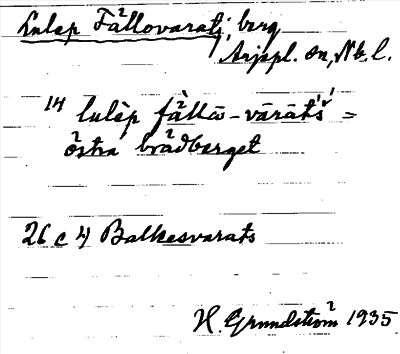 Lulep Fållovaratj; berg
Arjepl. sn, Nb. l.
14 lulēp fàllō-vārāts̀ =
östra brådberget
26 c 4 Balkesvarats
H. Grundström 1935